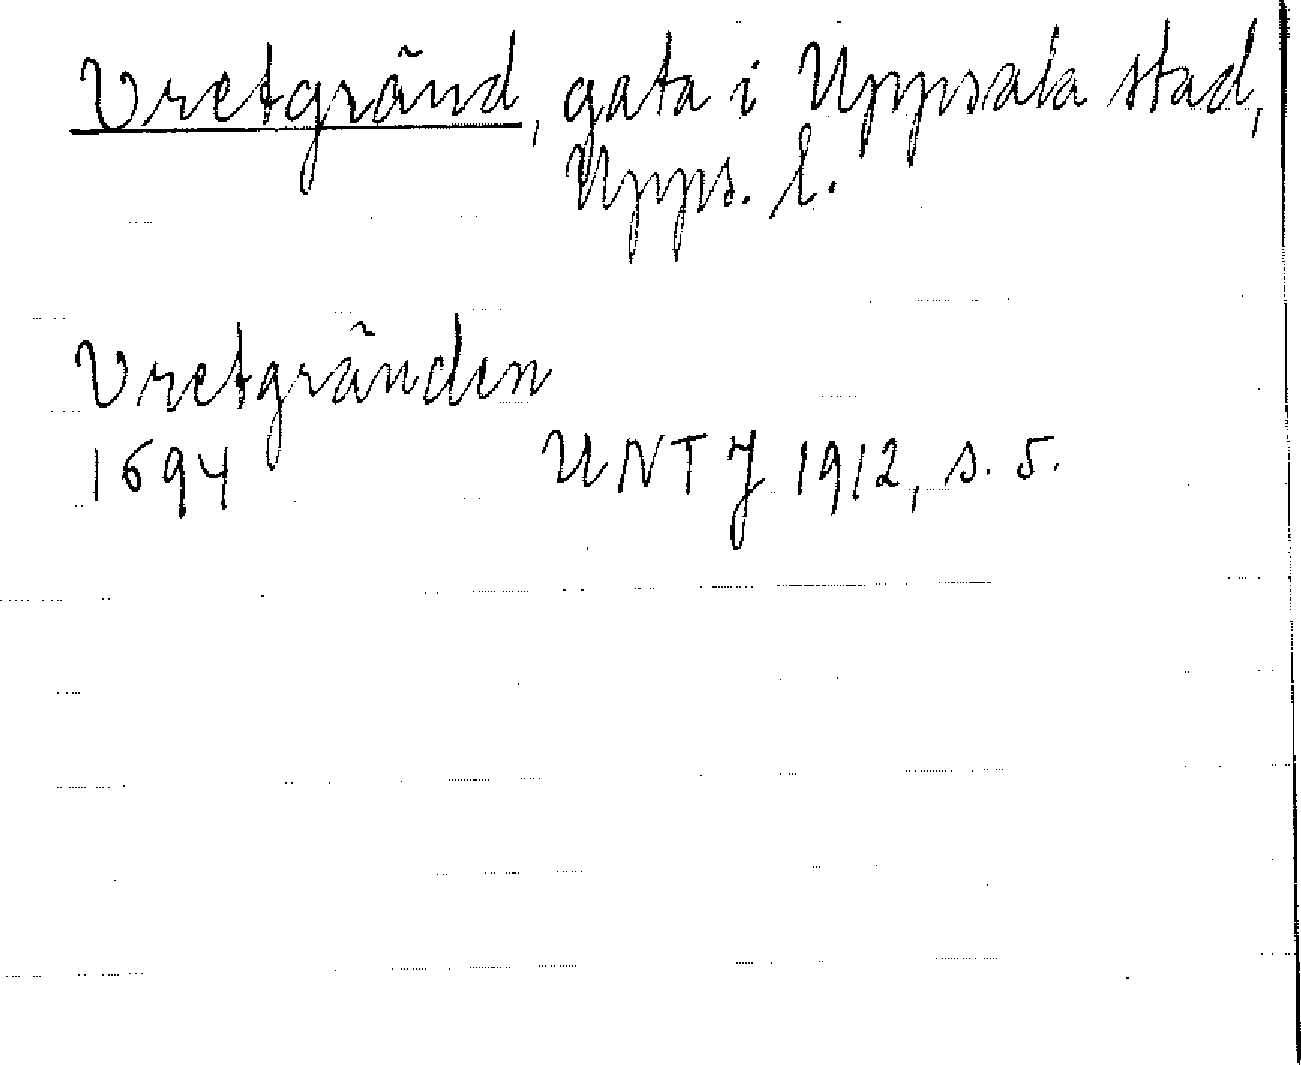 Vretgränd, gata i Uppsala stad,
Upps. l.
Vretgränden
1694 UNT J 1912, s. 5.